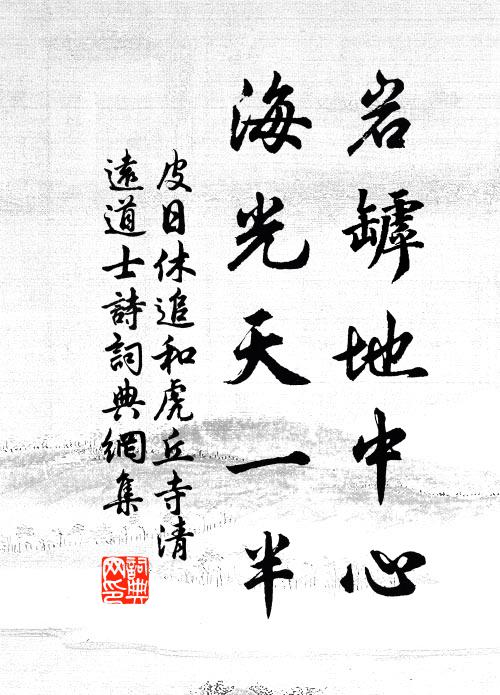 岩罅地中心
海光天一半
皮日休追和虎丘寺清
遠道士詩詞典網集
詞典網印